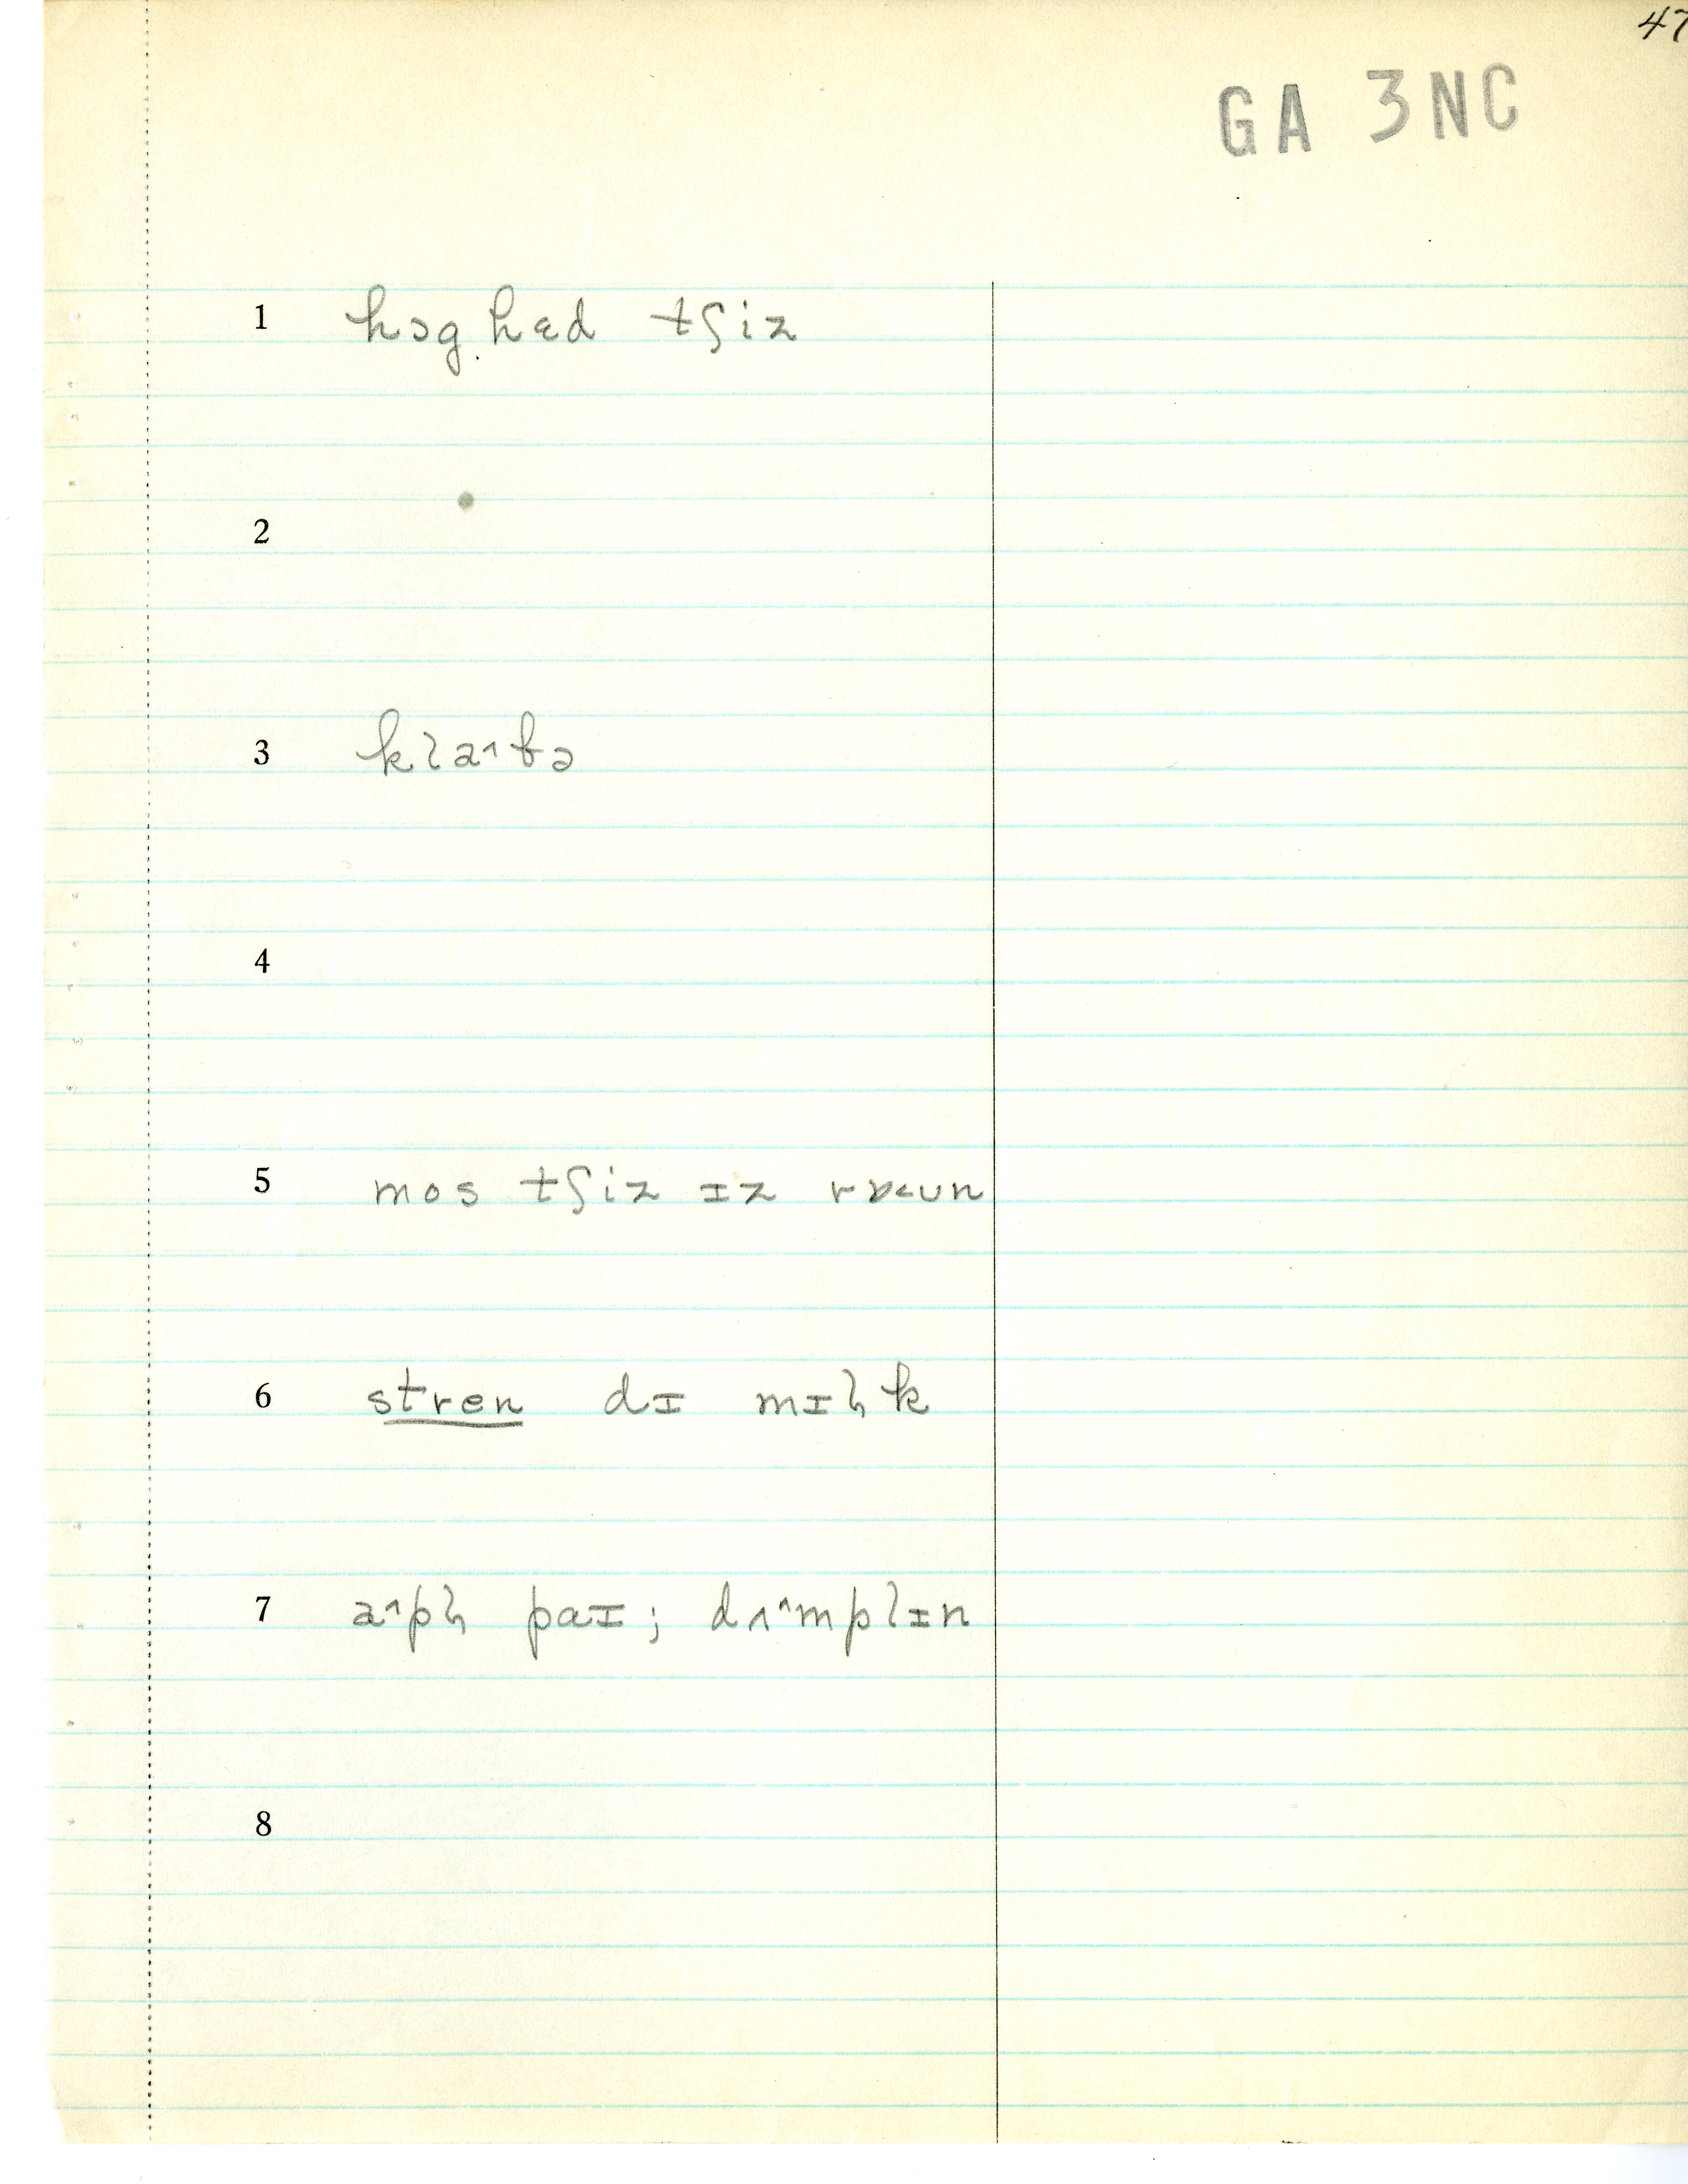 47
GA 3NC
1 hɔg hɛd tʃiz
2
3 klaˆbə
4
5 mos tʃiz ɪz rɒ˂un
6 stren dɪ mɪɫk
7 aˆpɫ paɪ; dʌˆmplɪn
8